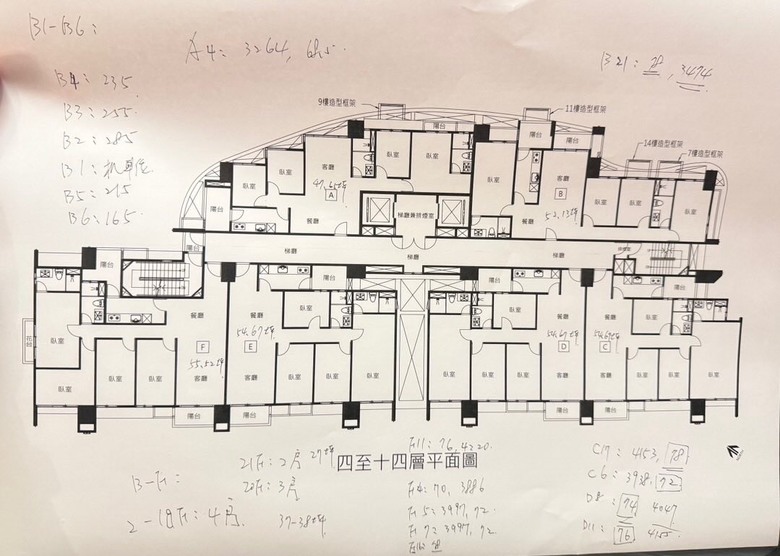 B1-B6:
A4: 3264, 68.5.
B21: 78, 3474
B4: 235
B3: 255.
B2: 285
B1: 机車位
B5: 215
B6: 165.
9樓造型框架
11樓造型框架
14樓造型框架
7樓造型框架
陽台
陽台
陽台
臥室
臥室
客廳
臥室
臥室
臥室
客廳
臥室
47.65坪
A
B
臥室
臥室
臥室
陽台
餐廳
梯廳兼排煙室
餐廳
52.13坪
梯廳
梯廳
陽台
陽台
陽台
陽台
陽台
陽台
臥室
餐廳
餐廳
臥室
臥室
餐廳
餐廳
臥室
54.67坪
54.67坪
54.67坪
花台
臥室
F
E
D
C
55.52坪
臥室
臥室
臥室
客廳
客廳
臥室
臥室
臥室
臥室
臥室
臥室
客廳
客廳
臥室
臥室
臥室
陽台
陽台
陽台
陽台
四至十四層平面圖
21F: 2房 27坪
20F: 3房
2-18F: 4房
37-38坪
F11: 76, 4220.
F4: 70, 3886
F5: 3997, 72.
F7: 3997, 72.
C17: 4153, 78
C6: 3938, 72
D8: 74 4047
D11: 76 4155